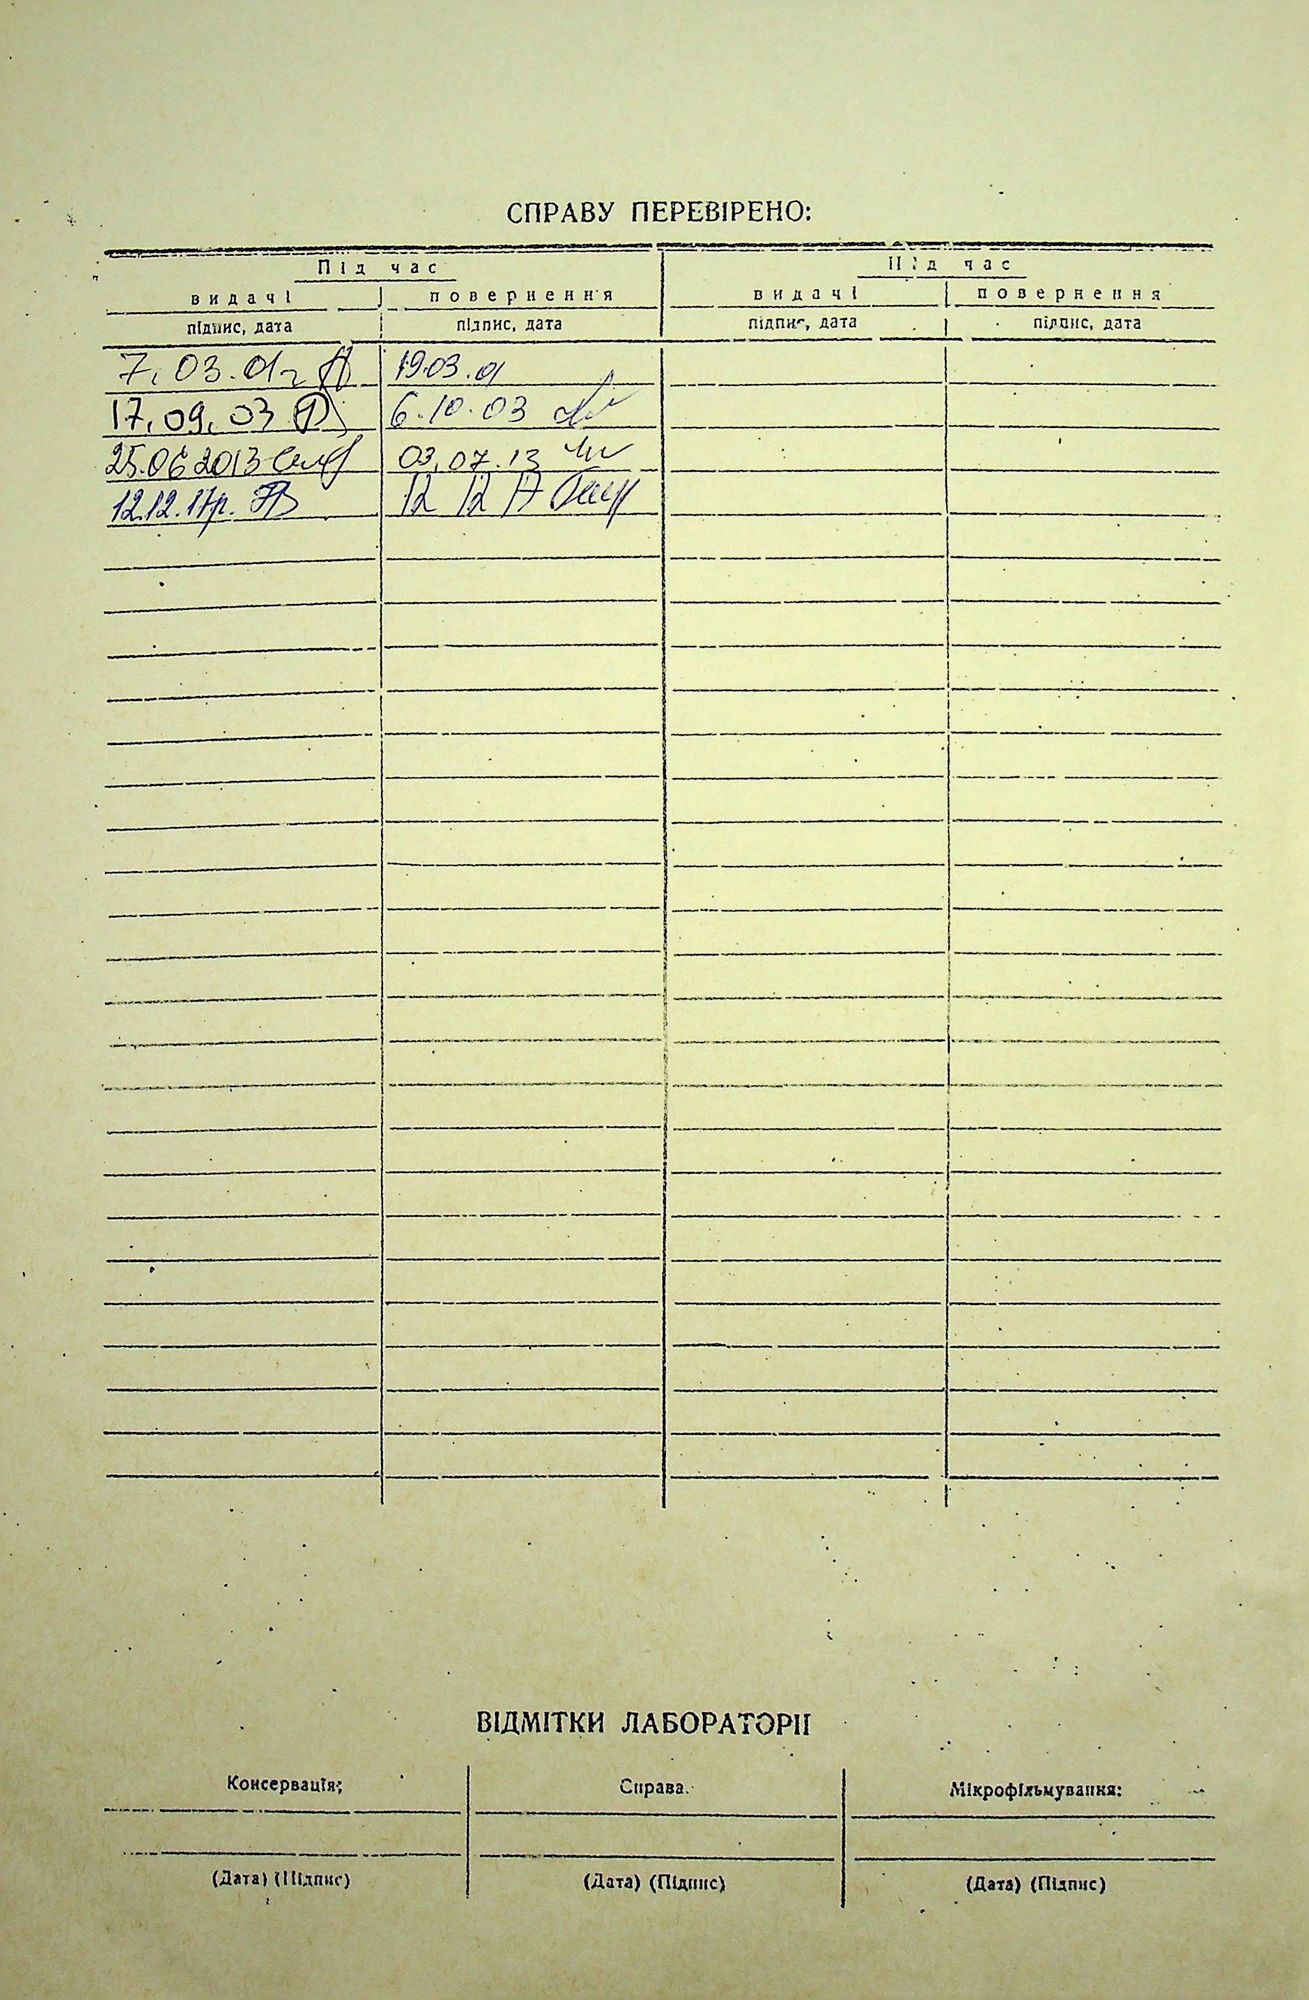 СПРАВУ ПЕРЕВІРЕНО:
Під час Під час
видачі повернення видачі повернення
підпис, дата підпис, дата підпис, дата підпис, дата
7.03.01г 19.03.01
17.09.03 6.10.03
25.06.2013 03.07.13
12.12.17р. 12 12 17
ВІДМІТКИ ЛАБОРАТОРІЇ
Консервація; Справа. Мікрофільмування:
(Дата) (Підпис) (Дата) (Підпис) (Дата) (Підпис)